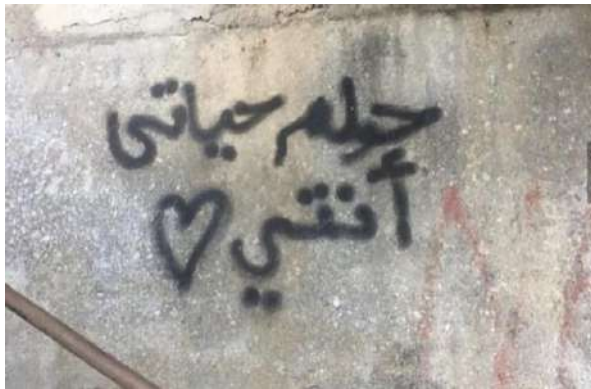 حلم حياتى
أنتي ♡